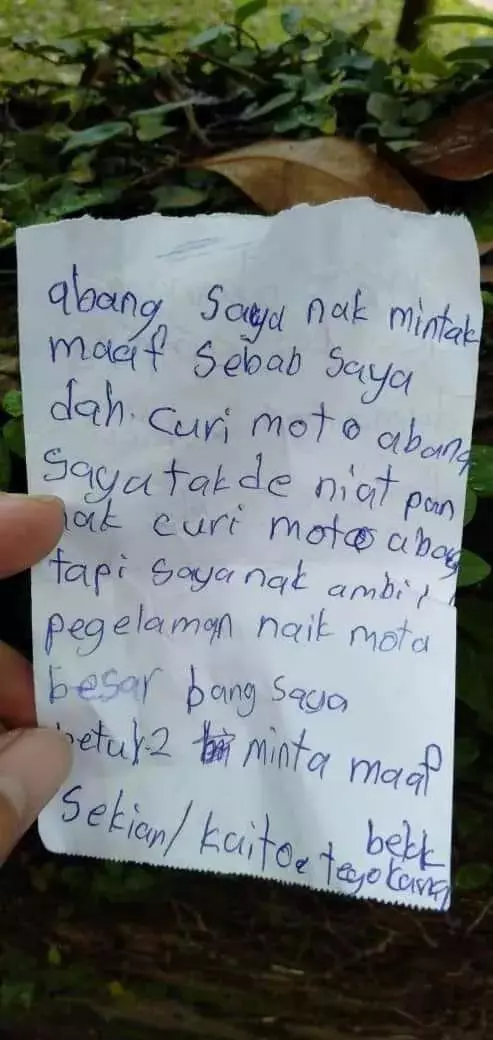 abang saya nak mintak
maaf sebab saya
dah. curi moto abang
saya takde niat pon
nak curi moto abag
tapi saya nak ambil
pegelaman naik moto
besar bang saya
betul2 minta maaf
sekian/kaitoe bekk